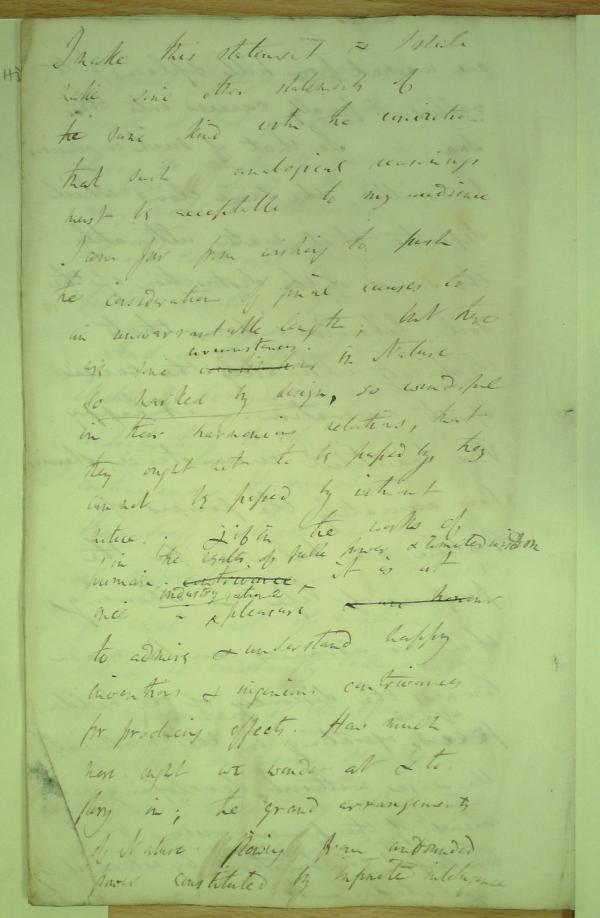 I make this statement & I shall
make some other statements of
the same kind with the conviction
that such analogical reasonings
must be acceptable to my audience
I am far from wishing to push
the consideration of final causes to
an unwarrantable length; but there
are some
circumstances
in Nature
so marked by design, so wonderful
in their harmonious relations, that
they ought not to be passed by, they
cannot be passed by without
notice. & if in the works of
in the results of feeble power & limited wisdom
human contrivance it is not
industry alone
once a pleasure
to admire & understand happy
inventions & ingenious contrivances
for producing effects. How much
more ought we wonder at & to
glory in; the grand arrangements
of Nature flowing from unbounded
power constituted by infinite intelligence